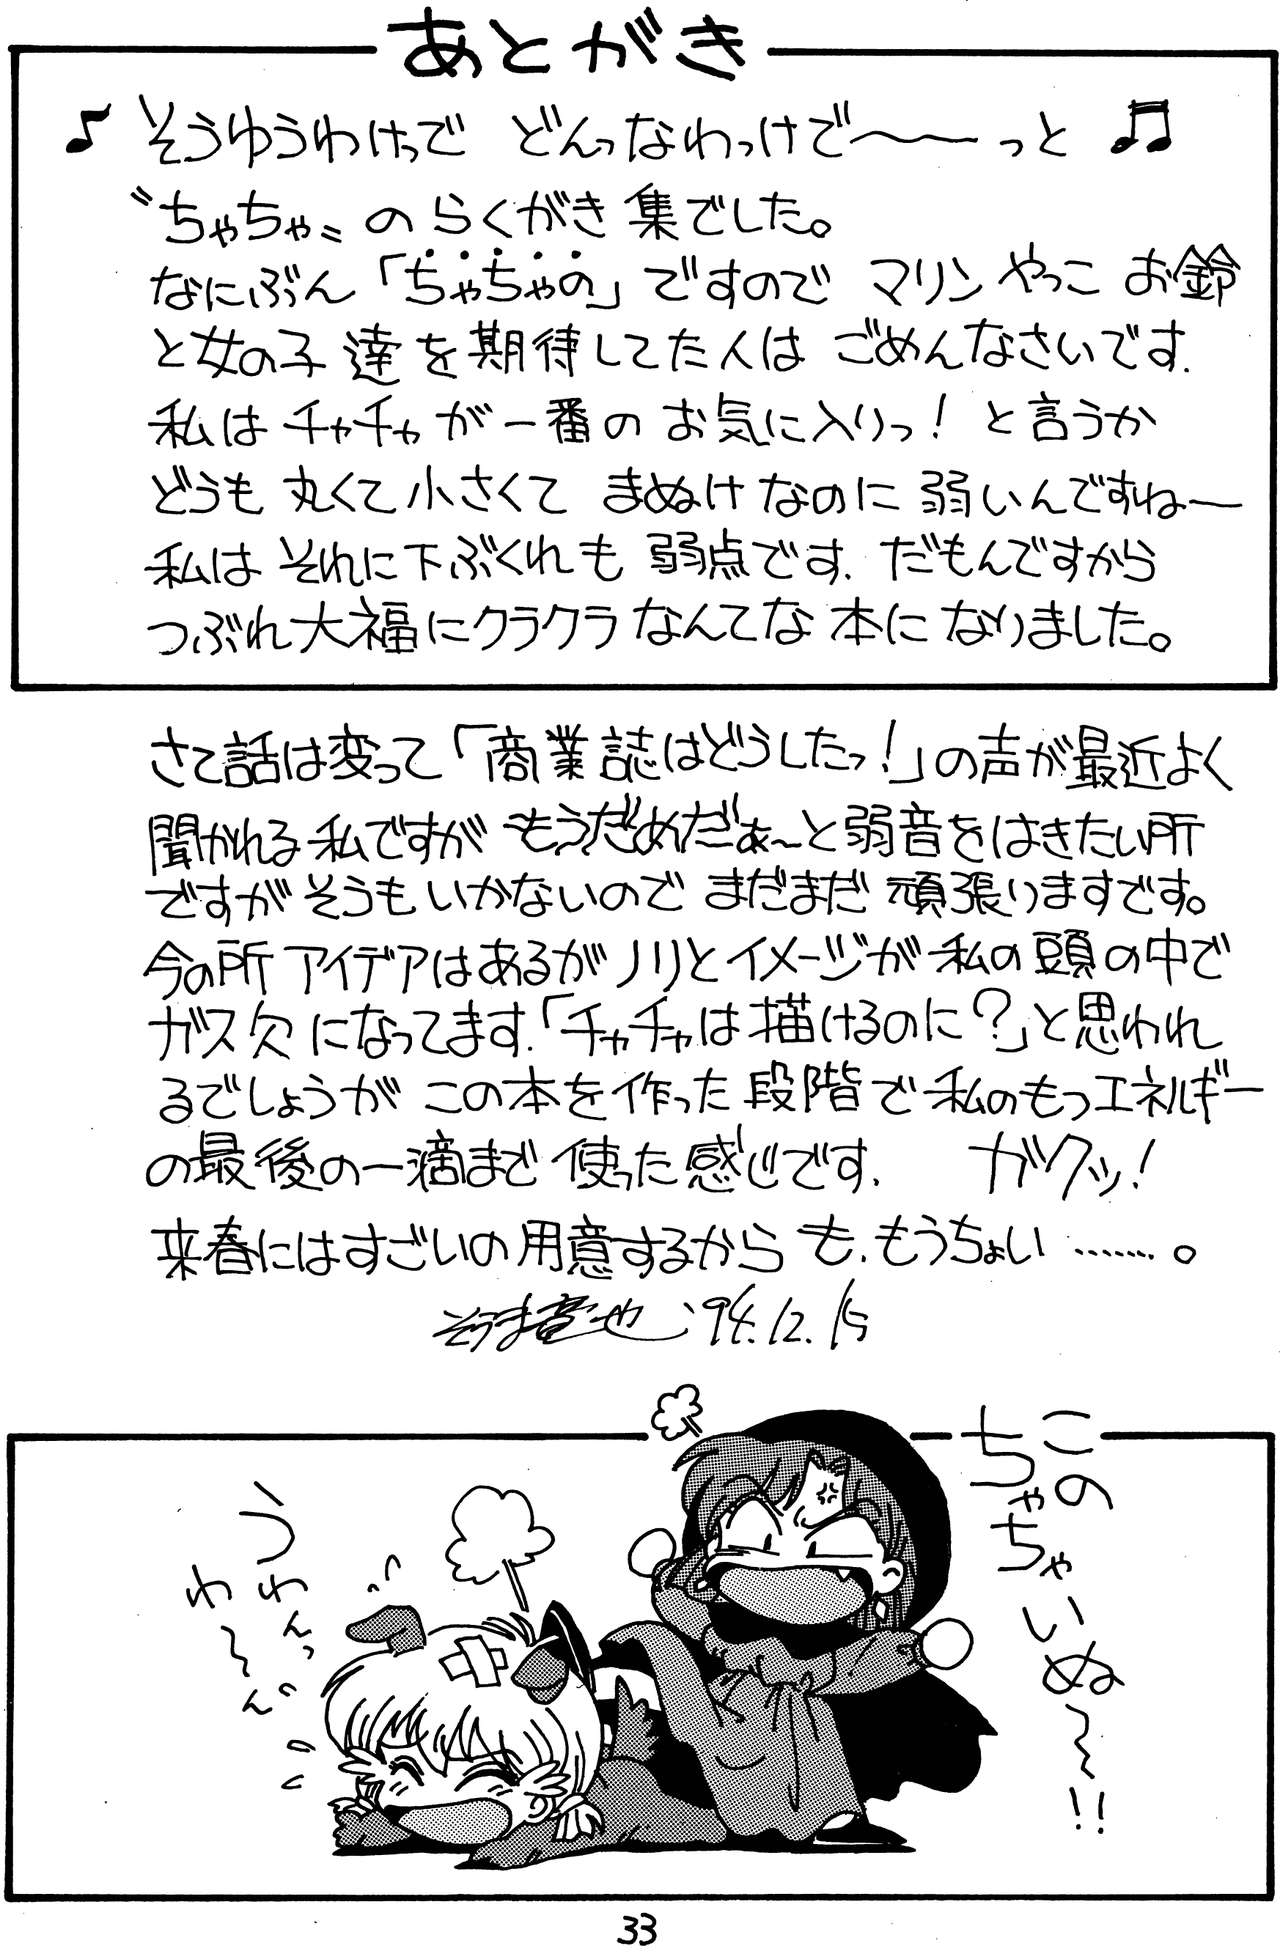 あとがき
♪ そうゆうわけっで どんっなわっけで〜〜っと ♫
〝ちゃちゃ〟の らくがき 集でした。
なにぶん「ちゃちゃの」ですので マリン やっこ お鈴
と女の子達を期待してた人は ごめんなさいです.
私は チャチャが一番の お気に入りっ! と言うか
どうも 丸くて小さくて まぬけなのに 弱いんですね〜
私は それに下ぶくれも 弱点です. だもんですから
つぶれ大福にクラクラなんてな 本に なりました。
さて話は変って「商業誌はどうしたっ!」の声が最近よく
聞かれる 私ですが もうだめだぁ〜と弱音をはきたい所
ですが そうもいかないので まだまだ 頑張りますです。
今の所 アイデアはあるが ノリとイメージが 私の頭の中で
ガス欠になってます.「チャチャは描けるのに?」と思われ
るでしょうが この本を作った段階で 私のもつエネルギー
の最後の一滴まで 使った感じです. ガクッ!
来春にはすごいの用意するから も、もうちょい ‥‥‥。
そうま竜也 '94.12.15
この
ちゃちゃ
いぬ〜〜!!
うわんっ
わ〜〜ん
33